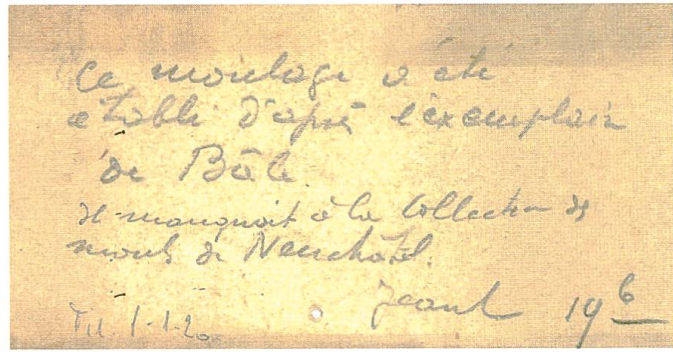 Ce moulage a été
établi d'après l'exemplaire
de Bâle.
Il manquait à la Collection de
moul. de Neuchâtel.
19